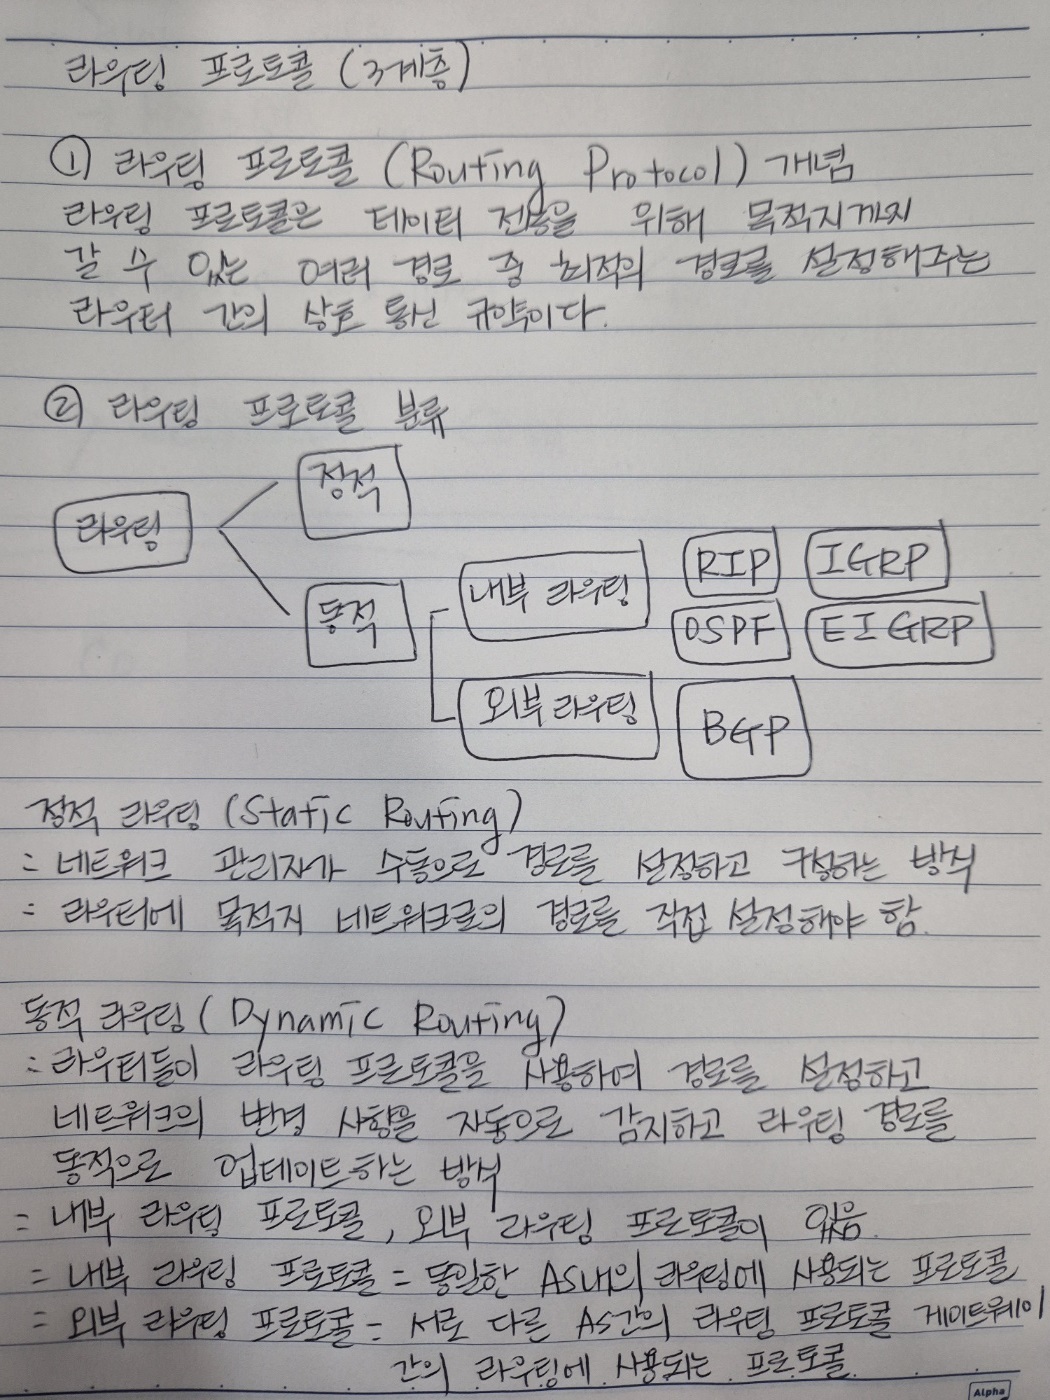 라우팅 프로토콜 (3계층)
① 라우팅 프로토콜 (Routing Protocol) 개념
라우팅 프로토콜은 데이터 전송을 위해 목적지까지
갈 수 있는 여러 경로 중 최적의 경로를 설정해주는
라우터 간의 상호 통신 규약이다.
② 라우팅 프로토콜 분류
정적
라우팅
동적
내부 라우팅
RIP
IGRP
OSPF
EIGRP
외부 라우팅
BGP
정적 라우팅 (Static Routing)
= 네트워크 관리자가 수동으로 경로를 설정하고 구성하는 방식
= 라우터에 목적지 네트워크로의 경로를 직접 설정해야 함.
동적 라우팅 (Dynamic Routing)
= 라우터들이 라우팅 프로토콜을 사용하여 경로를 설정하고
네트워크의 변경 사항을 자동으로 감지하고 라우팅 경로를
동적으로 업데이트하는 방식
= 내부 라우팅 프로토콜, 외부 라우팅 프로토콜이 있음.
= 내부 라우팅 프로토콜 = 동일한 AS내의 라우팅에 사용되는 프로토콜
= 외부 라우팅 프로토콜 = 서로 다른 AS간의 라우팅 프로토콜 게이트웨이
간의 라우팅에 사용되는 프로토콜
Alpha